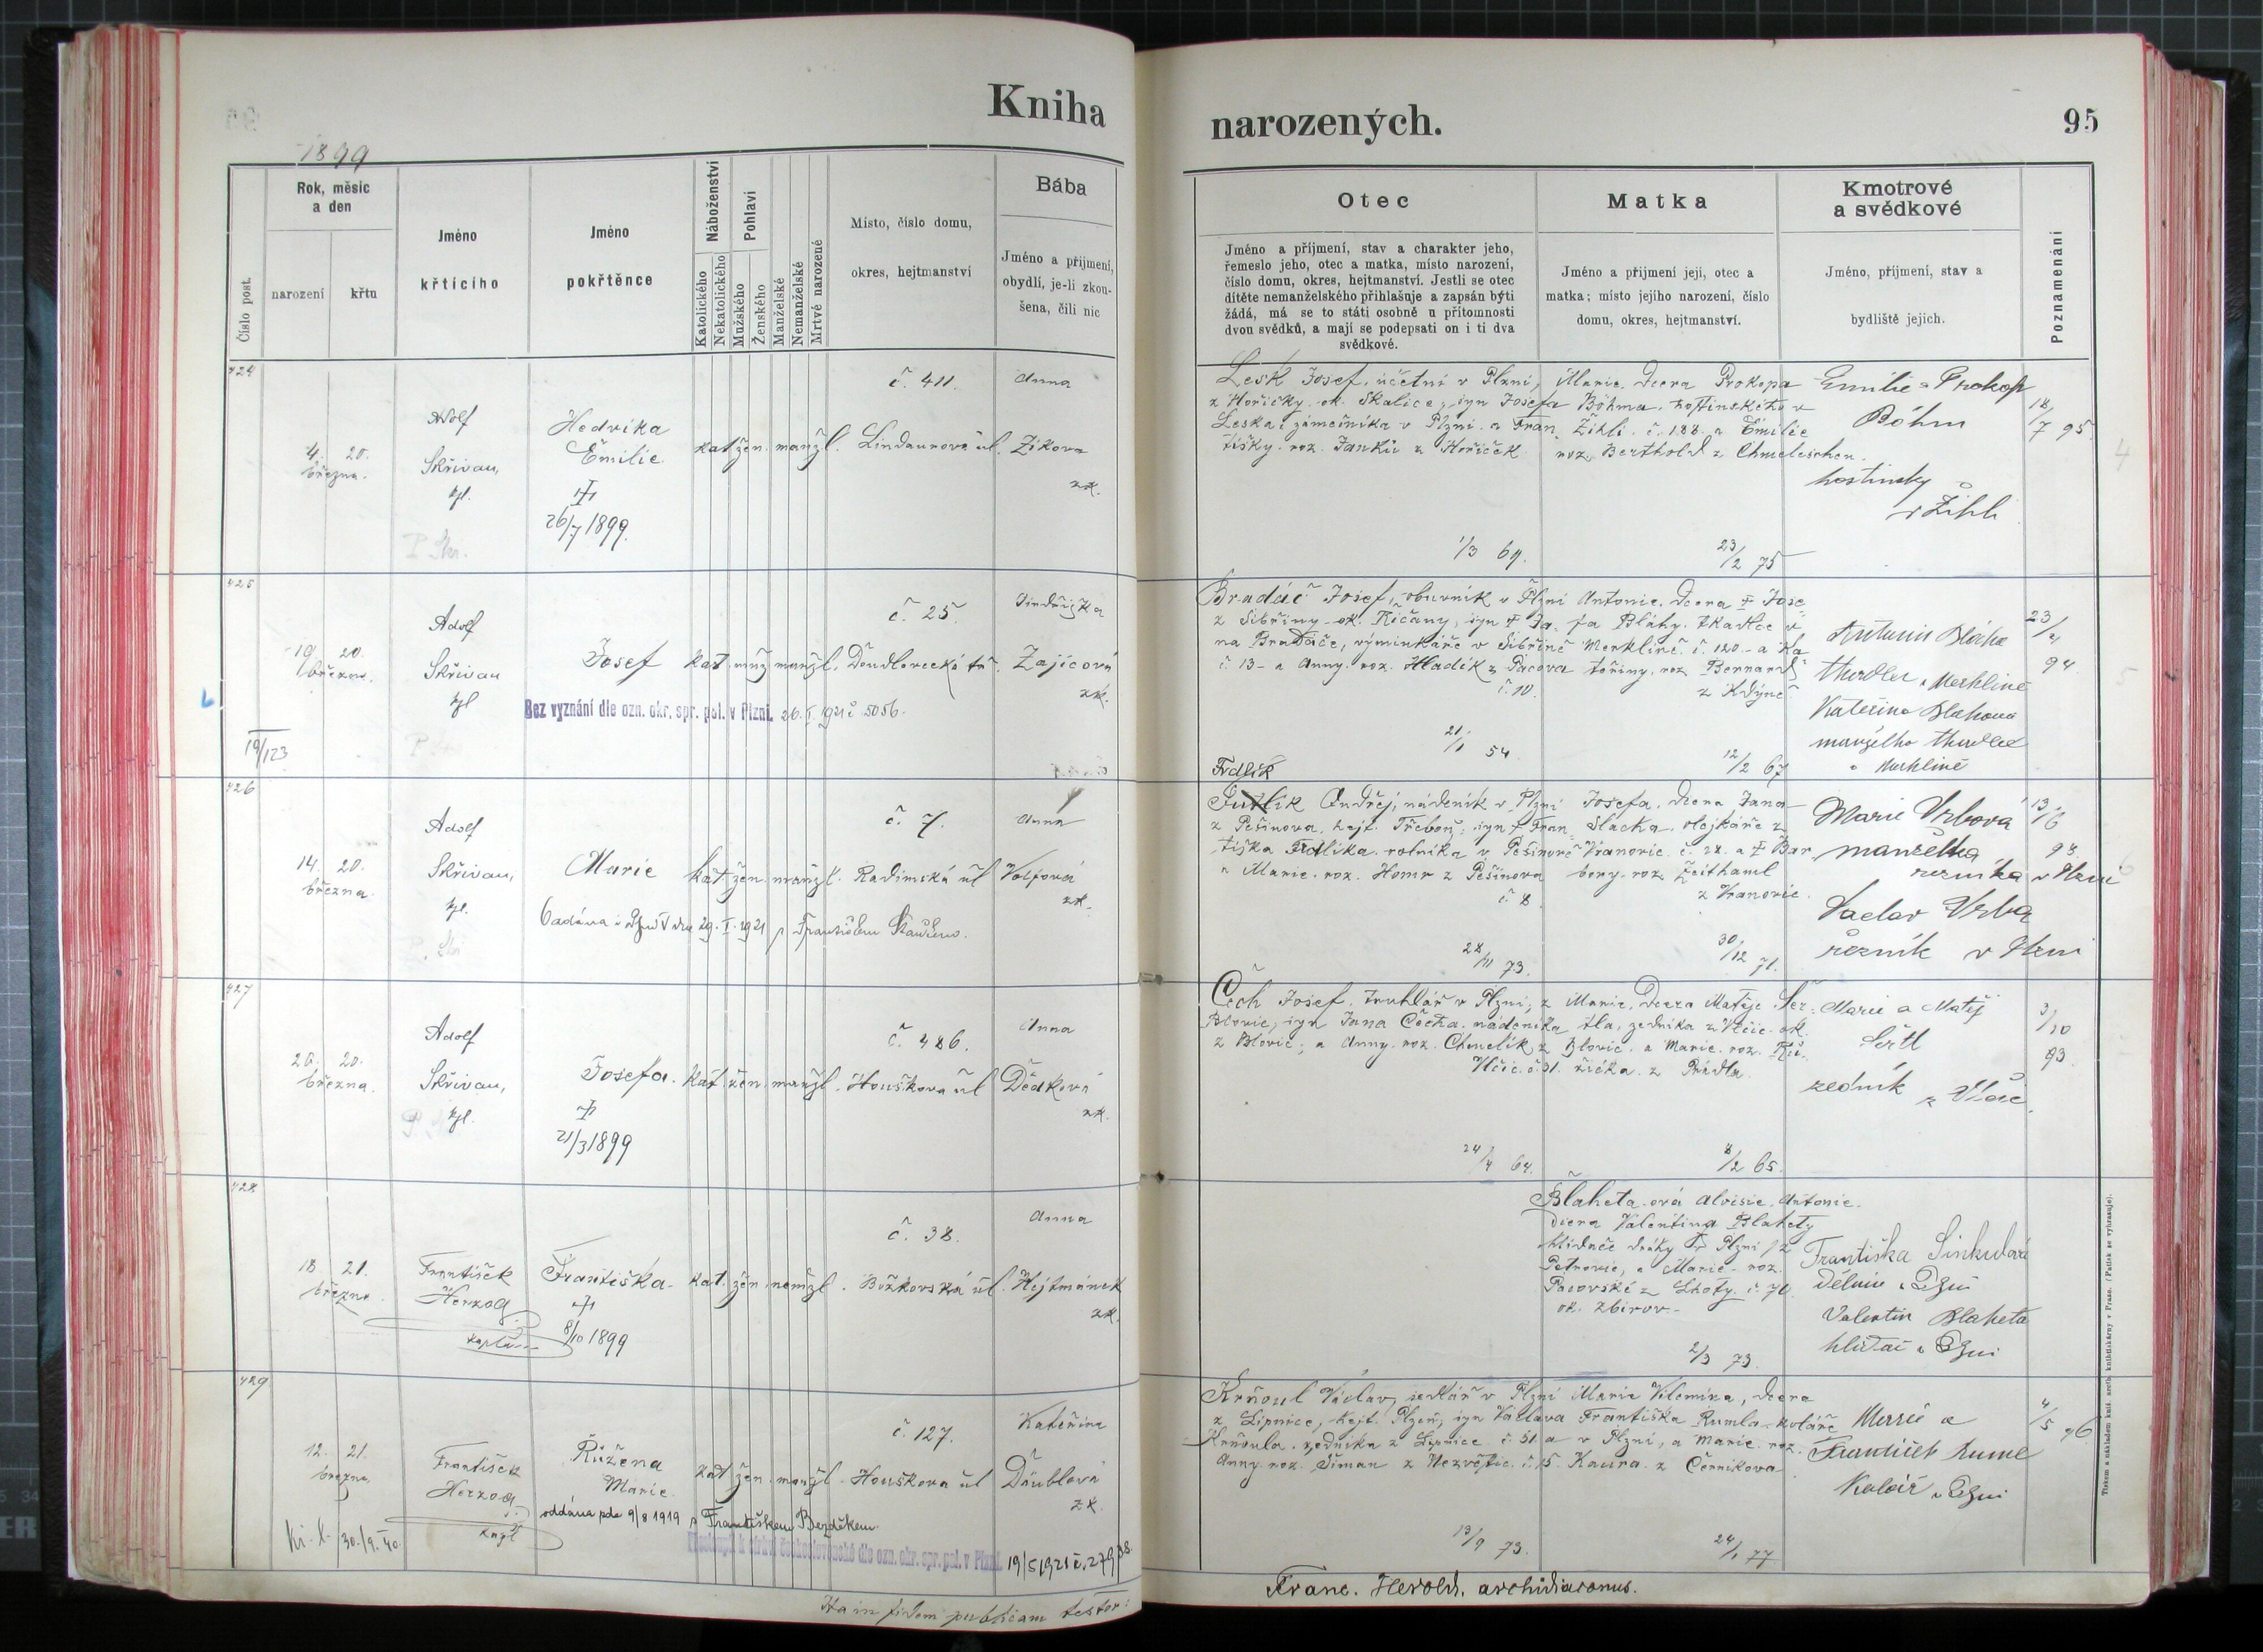 Kniha
narozených.
95
1899
Číslo post.
Rok, měsíc
a den
narození
křtu
Jméno
křtícího
Jméno
pokřtěnce
Náboženství
Katolického
Nekatolického
Pohlaví
Mužského
Ženského
Manželské
Nemanželské
Mrtvě narozené
Místo, číslo domu,
okres, hejtmanství
Bába
Jméno a příjmení,
obydlí, je-li zkou-
šena, čili nic
Otec
Jméno a příjmení, stav a charakter jeho,
řemeslo jeho, otec a matka, místo narození,
číslo domu, okres, hejtmanství. Jestli se otec
dítěte nemanželského přihlašuje a zapsán býti
žádá, má se to státi osobně u přítomnosti
dvou svědků, a mají se podepsati on i ti dva
svědkové.
Matka
Jméno a příjmení její, otec a
matka; místo jejího narození, číslo
domu, okres, hejtmanství.
Kmotrové
a svědkové
Jméno, příjmení, stav a
bydliště jejich.
Poznamenání
424
4. 20.
března.
Adolf
Skřivan,
kpl.
Hedvika
Emilie
26/7 1899.
kat žen. manžl.
č. 411.
Lindaurova ul.
Anna
Zíkova
zk.
Lesk Josef, účetní v Plzni,
z Hořičky, ok. Skalice, syn Josefa
Leska, zámečníka v Plzni a Fran-
tišky roz. Janků z Hořiček
1/3 69.
Marie, dcera Prokopa
Böhma, hostinského v
Žihli č. 188. a Emilie
roz. Berthold z Chmeleschen.
23/2 75
Emilie a Prokop
Böhm
hostinsky
v Žihli
18/7 95.
425
19. 20.
března.
Adolf
Skřivan
kpl
Josef
kat muž manžl.
č. 25.
Doudlevecká tř.
Jindřiška
Zajícová
zk.
Bez vyznání dle ozn. okr. spr. pol. v Plzni. 26. I. 1921 č 5056.
19/123
Bradáč Josef, obuvník v Plzni
z Sibřiny ok. Říčany, syn † Ja-
na Bradáče, výminkáře v Sibřině
č 13 a Anny roz. Hladík z Pacova
č. 10.
21/1 54
Antonie, dcera † Jose-
fa Bláhy, tkadlce v
Merklíně č. 120. a Ka-
teřiny, roz Bernard
z Kdyně
12/2 67
Antonin Bláha
tkadlec v Merklíně
Kateřina Blahová
manželka tkadlce
v Merklíně
23/4 94.
426
14. 20.
března.
Adolf
Skřivan,
kpl.
Marie
kat žen. manžl.
č. 7.
Radimská ul
Anna
Volfová
zk.
Frdlík
Ondřej, nádeník v Plzni
z Pešinova, hejt. Třeboň, syn † Fran-
tiška Frdlíka, rolníka v Pešinově
a Marie roz. Homr z Pešinova
č 8.
28/11 73.
Josefa, dcera Jana
Slacha, olejkáře z
Vranovic č. 28. a † Bar-
bory roz. Zeithaml
z Vranovic.
30/12 71.
Marie Vrbová
manželka
řezníka v Plzni
Vaclav Vrba
řezník v Plzni
13/6 98
427
20. 20.
března.
Adolf
Skřivan,
kpl.
Josefa.
21/3 1899
kat žen. manžl.
č. 486.
Houškova ul
Anna
Dědková
zk.
Čech Josef, truhlář v Plzni, z
Blovic, syn Jana Čecha, nádeníka
z Blovic, a Anny roz. Chmelík z
24/4 64.
Marie, dcera Matěje Šer-
tla, zedníka z Vlčic ok.
Blovic a Marie roz. Rů-
Vlčic č. 31. žička z Prádla
8/2 65.
Marie a Matěj
Šertl
zedník z Vlčic.
3/10 93.
428
18. 21.
března
František
Herzog
kaplan
Františka
8/10 1899
kat. žen. nemžl.
č. 38.
Božkovská ul.
Anna
Hejtmánek
zk.
Blaheta-ová Aloisie, Antonie.
dcera Valentina Blahety
hlídače dráhy v Plzni z
Petrovic, a Marie roz.
Pacovské z Lhoty č. 70.
ok. Zbirov.
2/3 73.
Františka Sinkulová
dělnice v Plzni
Valentin Blaheta
hlídač v Plzni
429
12. 21.
března
František
Herzog
kapl
Růžena
Marie.
kat žen. manžl.
č. 127.
Houškova ul
Kateřina
Doublová
zk.
oddána dne 9/8 1919 s Františkem Bezděkem.
30./9. 40.
dle ozn. okr. spr. pol. v Plzni. 19/5 1921 č. 27938.
Krňoul Václav, sedlář v Plzni
z Lipnice, hejt. Plzeň, syn Václava
Krňoula, zedníka z Lipnice č. 51 a
Anny roz. Šiman z Nezvěstic č. 15.
13/9 73.
Marie Vilemína, dcera
Františka Rumla, koláře
v Plzni, a Marie roz.
Kaura z Černikova
24/1 77
Marie a
František Ruml
Kolář v Plzni
4/5 96.
Ita in fidem publicam testor:
Franc. Herold, archidiaconus.